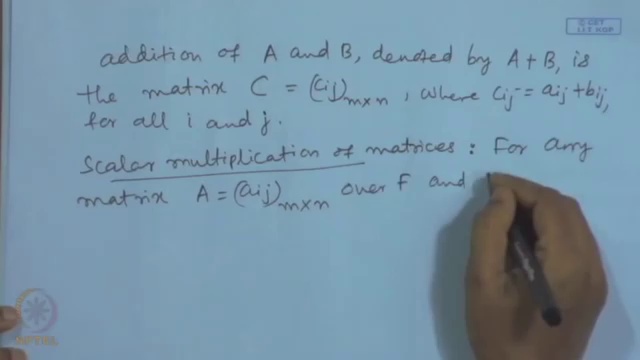 © CET
I.I.T. KGP
addition of A and B, denoted by A + B, is
the matrix C = (cij)m×n, where cij = aij + bij,
for all i and j.
Scalar multiplication of matrices : For any
matrix A = (aij)m×n over F and
NPTEL